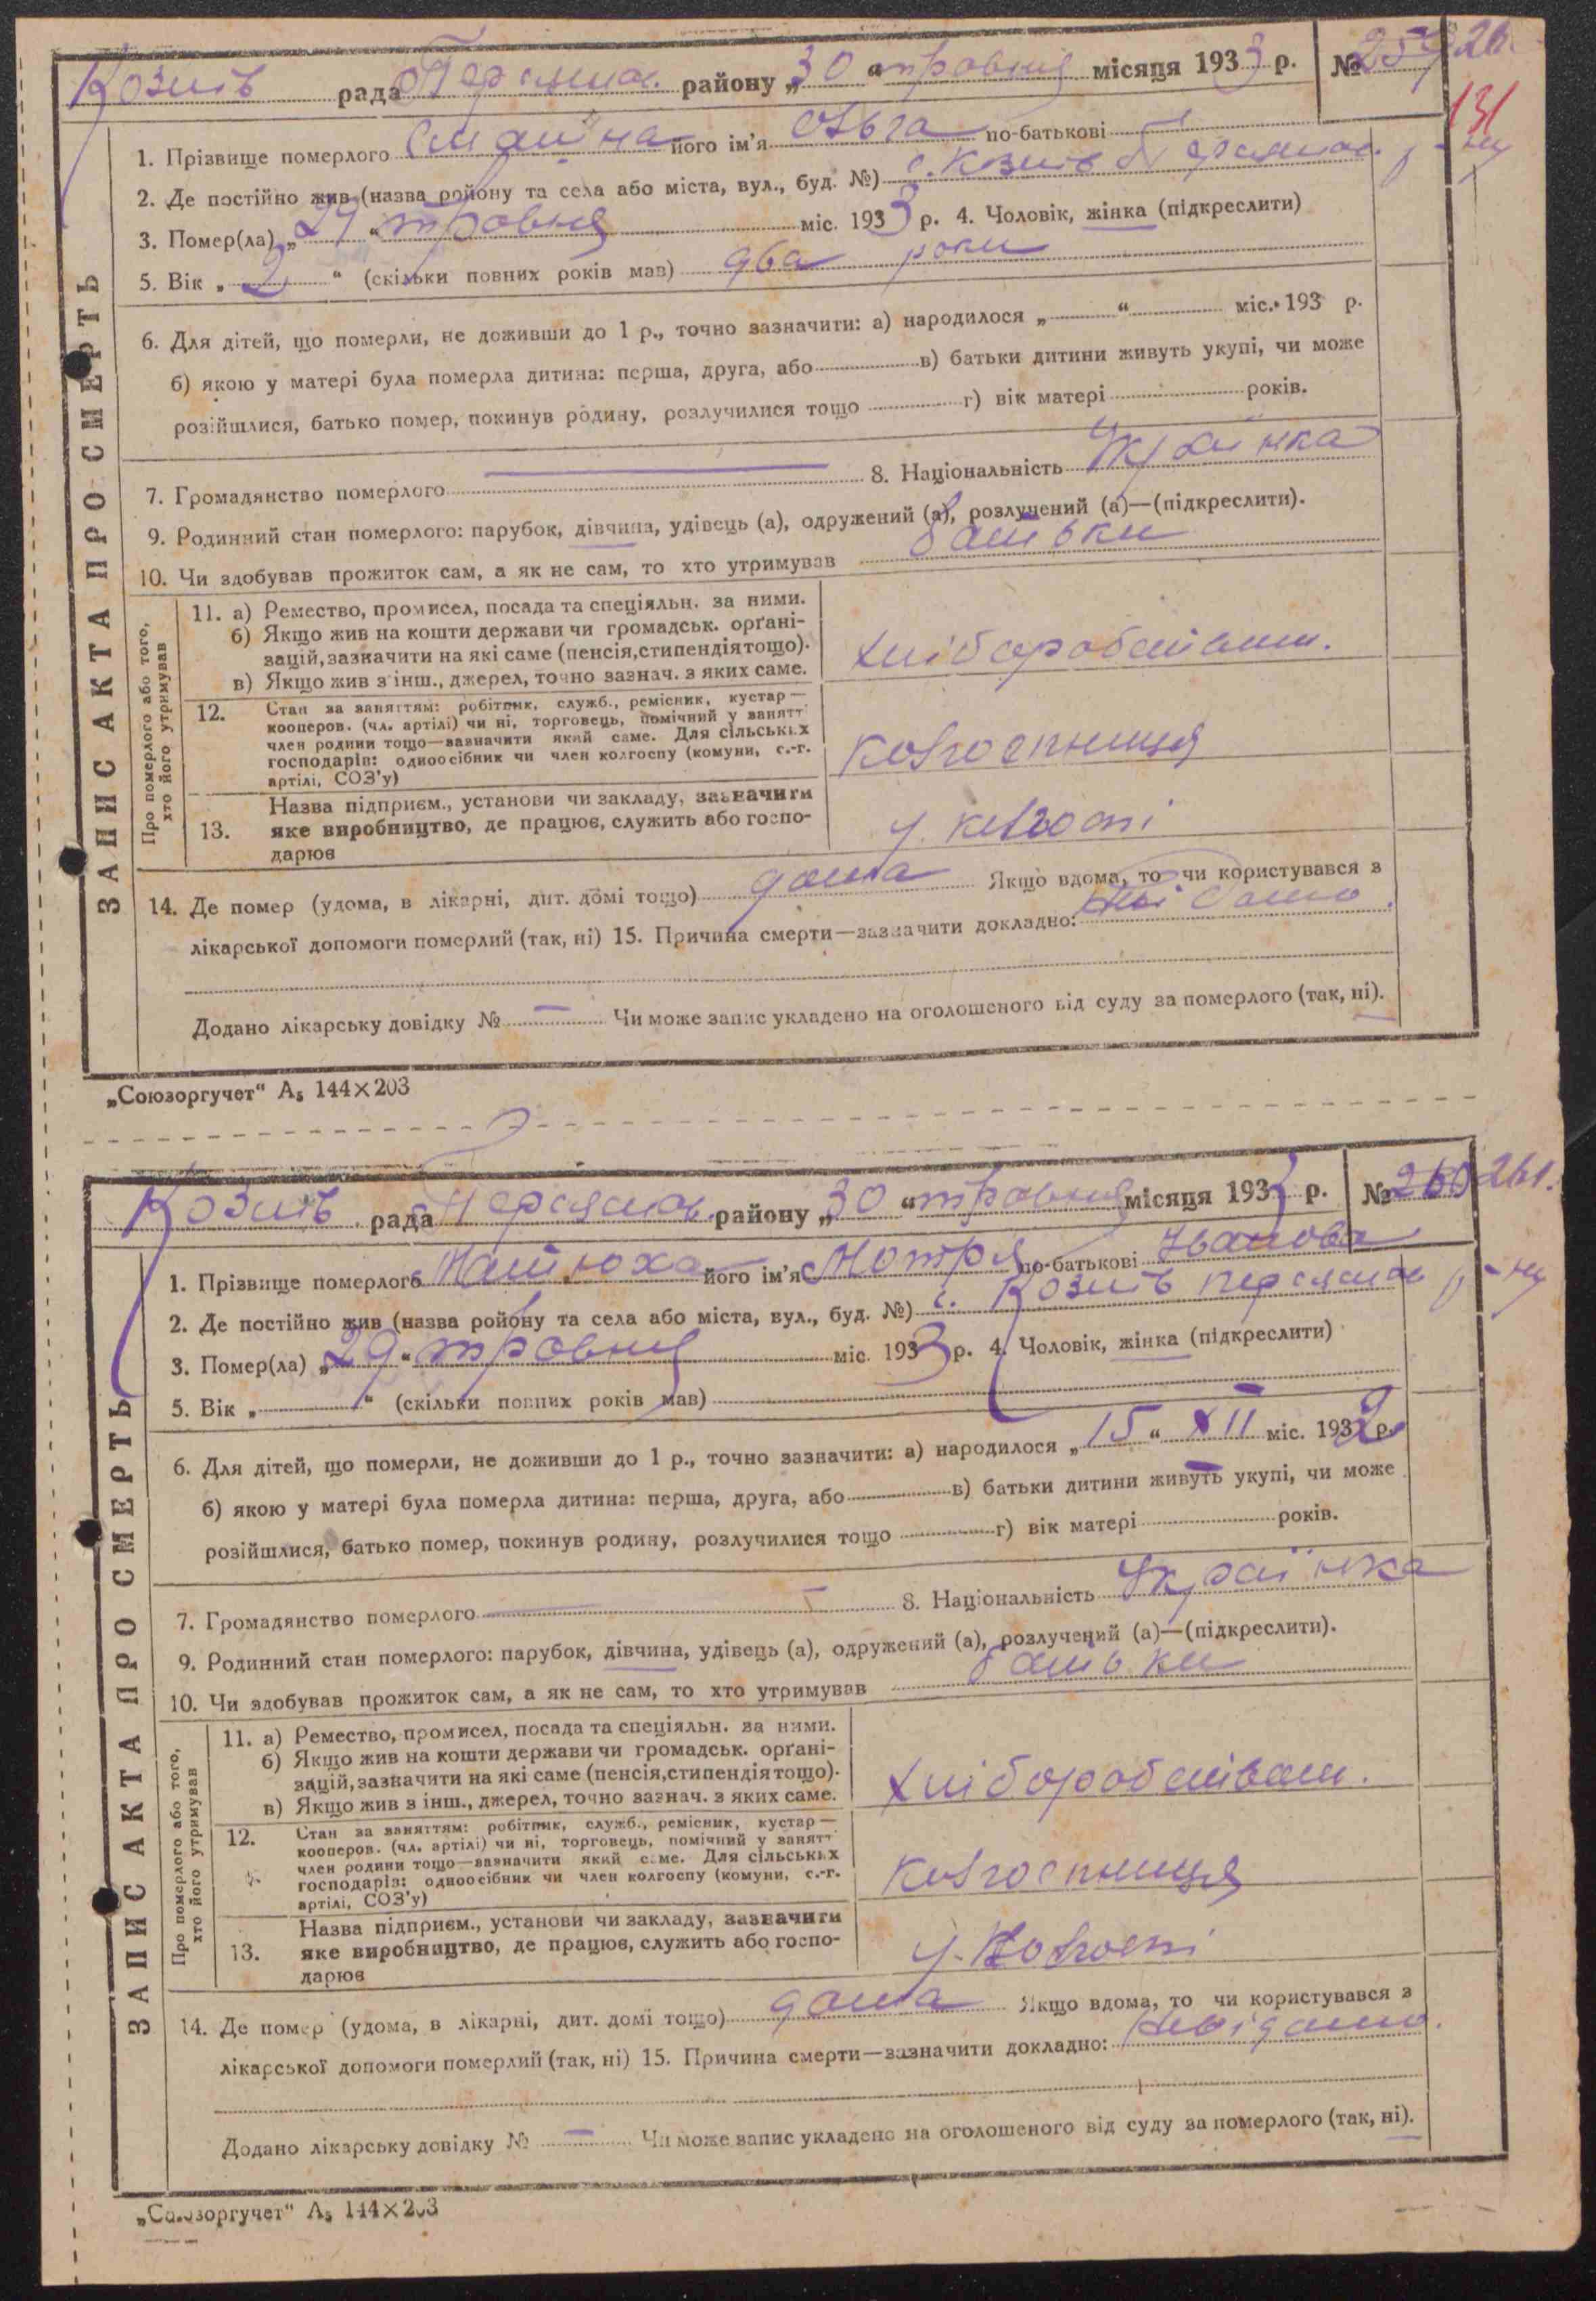 Козлів рада Переяслав. району „30“ травня місяця 1933 р. № 259 26
131
1. Прізвище померлого його ім'я Ольга по-батькові
2. Де постійно жив (назва ройону та села або міста, вул., буд. №) с. Козлів Переяслав. р-ну
3. Помер(ла) „29“ травня міс. 1933 р. 4. Чоловік, жінка (підкреслити)
5. Вік „2“ (скільки повних років мав) два роки
6. Для дітей, що померли, не доживши до 1 р., точно зазначити: а) народилося „ “ міс. 193 р.
б) якою у матері була померла дитина: перша, друга, або в) батьки дитини живуть укупі, чи може
розійшлися, батько помер, покинув родину, розлучилися тощо г) вік матері років.
7. Громадянство померлого 8. Національність Українка
9. Родинний стан померлого: парубок, дівчина, удівець (а), одружений (а), розлучений (а)—(підкреслити).
10. Чи здобував прожиток сам, а як не сам, то хто утримував батьки
ЗАПИС АКТА ПРО СМЕРТЬ
Про померлого або того, хто його утримував
11. а) Ремество, промисел, посада та спеціяльн. за ними.
б) Якщо жив на кошти держави чи громадськ. орґані-
зацій, зазначити на які саме (пенсія, стипендія тощо).
в) Якщо жив з інш., джерел, точно зазнач. з яких саме.
хліборобством.
12. Стан за заняттям: робітник, служб., ремісник, кустар—
кооперов. (чл. артілі) чи ні, торговець, помічний у занятт
член родини тощо—зазначити який саме. Для сільських
господарів: одноосібник чи член колгоспу (комуни, с.-г.
артілі, СОЗ'у)
колгоспниця
13. Назва підприєм., установи чи закладу, зазначити
яке виробництво, де працює, служить або госпо-
дарює
у колгоспі
14. Де помер (удома, в лікарні, дит. домі тощо) дома Якщо вдома, то чи користувався з
лікарської допомоги померлий (так, ні) 15. Причина смерти—зазначити докладно: невідомо.
Додано лікарську довідку № — Чи може запис укладено на оголошеного від суду за померлого (так, ні).
„Союзоргучет“ А5 144×203
Козлів рада Переяслав. району „30“ травня місяця 1933 р. № 260 261.
1. Прізвище померлого Матюха його ім'я Мотря по-батькові Іванова
2. Де постійно жив (назва ройону та села або міста, вул., буд. №) с. Козлів Переяслав р-ну
3. Помер(ла) „29“ травня міс. 1933 р. 4. Чоловік, жінка (підкреслити)
5. Вік „ “ (скільки повних років мав)
6. Для дітей, що померли, не доживши до 1 р., точно зазначити: а) народилося „15“ XII міс. 1932 р.
б) якою у матері була померла дитина: перша, друга, або в) батьки дитини живуть укупі, чи може
розійшлися, батько помер, покинув родину, розлучилися тощо г) вік матері років.
7. Громадянство померлого 8. Національність Українка
9. Родинний стан померлого: парубок, дівчина, удівець (а), одружений (а), розлучений (а)—(підкреслити).
10. Чи здобував прожиток сам, а як не сам, то хто утримував батьки
ЗАПИС АКТА ПРО СМЕРТЬ
Про померлого або того, хто його утримував
11. а) Ремество, промисел, посада та спеціяльн. за ними.
б) Якщо жив на кошти держави чи громадськ. орґані-
зацій, зазначити на які саме (пенсія, стипендія тощо).
в) Якщо жив з інш., джерел, точно зазнач. з яких саме.
хліборобством.
12. Стан за заняттям: робітник, служб., ремісник, кустар—
кооперов. (чл. артілі) чи ні, торговець, помічний у занятт
член родини тощо—зазначити який саме. Для сільських
господарів: одноосібник чи член колгоспу (комуни, с.-г.
артілі, СОЗ'у)
колгоспниця
13. Назва підприєм., установи чи закладу, зазначити
яке виробництво, де працює, служить або госпо-
дарює
у колгоспі
14. Де помер (удома, в лікарні, дит. домі тощо) дома Якщо вдома, то чи користувався з
лікарської допомоги померлий (так, ні) 15. Причина смерти—зазначити докладно: невідомо.
Додано лікарську довідку № — Чи може запис укладено на оголошеного від суду за померлого (так, ні).
„Союзоргучет“ А5 144×203